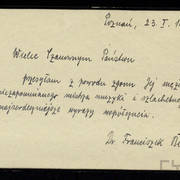 Poznań, 23. I. 1
Wielce Szanownym Państwu
przesyłam z powodu zgonu Jej męża
niezapomnianego mistrza muzyki i szlachetnego
najserdeczniejsze wyrazy współczucia.
Dr Franciszek